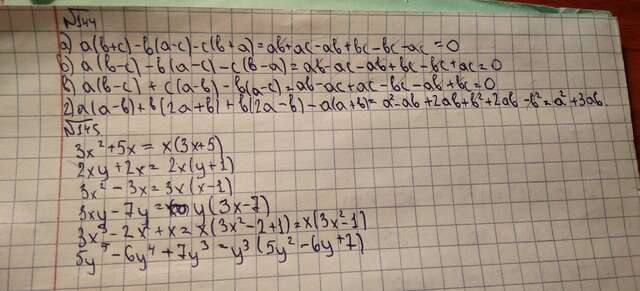 №144
а) a(b+c)-b(a-c)-c(b+a)=ab+ac-ab+bc-bc-ac=0
б) a(b-c)-b(a-c)-c(b-a)=ab-ac-ab+bc-bc+ac=0
в) a(b-c)+c(a-b)-b(a-c)=ab-ac+ac-bc-ab+bc=0
г) a(a-b)+b(2a+b)+b(2a-b)-a(a+b)=a²-ab+2ab+b²+2ab-b²=a²+3ab.
№145
3x²+5x=x(3x+5)
2xy+2x=2x(y+1)
3x²-3x=3x(x-1)
3xy-7y=y(3x-7)
3x³-2x²+x=x(3x²-2+1)=x(3x²-1)
5y⁵-6y⁴+7y³=y³(5y²-6y+7)